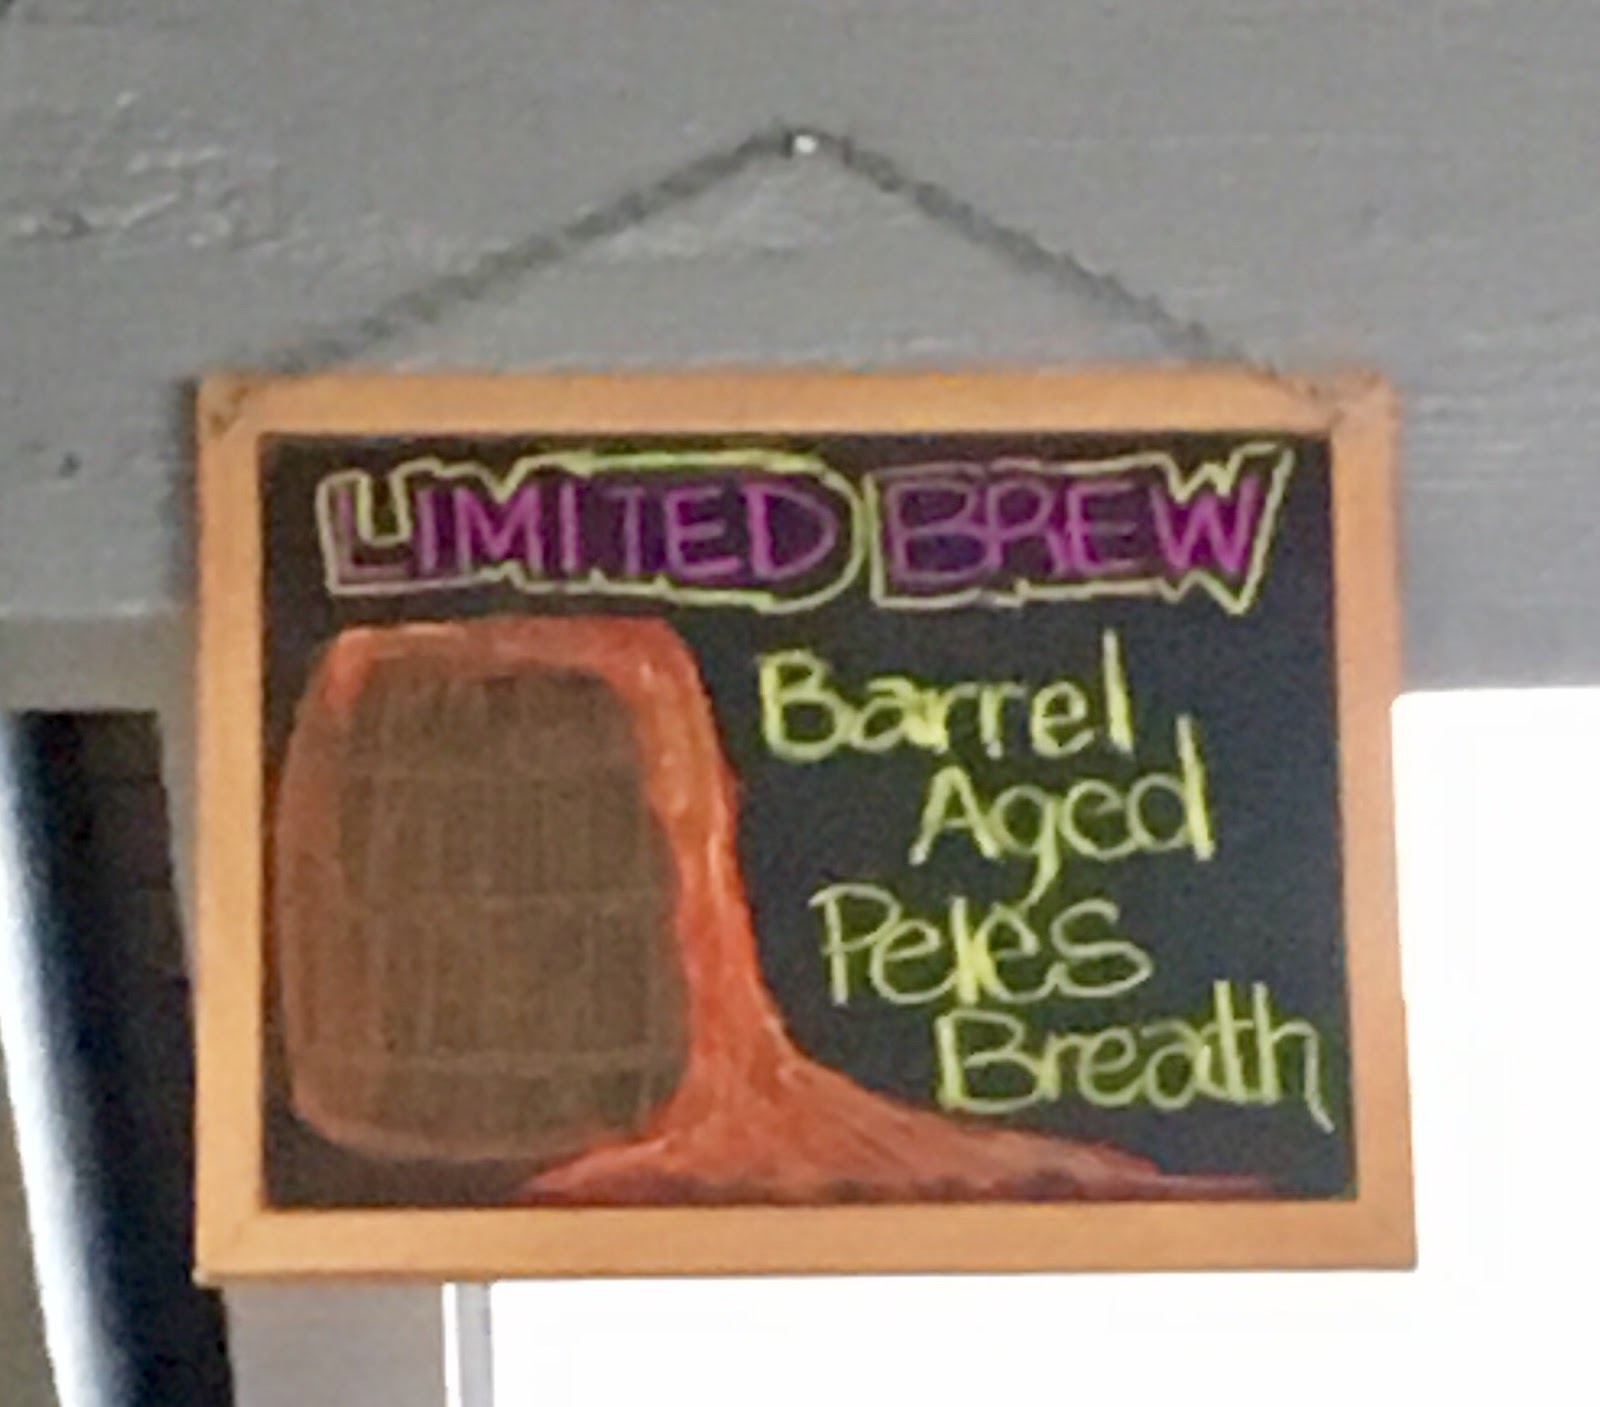 LIMITED BREW
Barrel
Aged
Peles
Breath